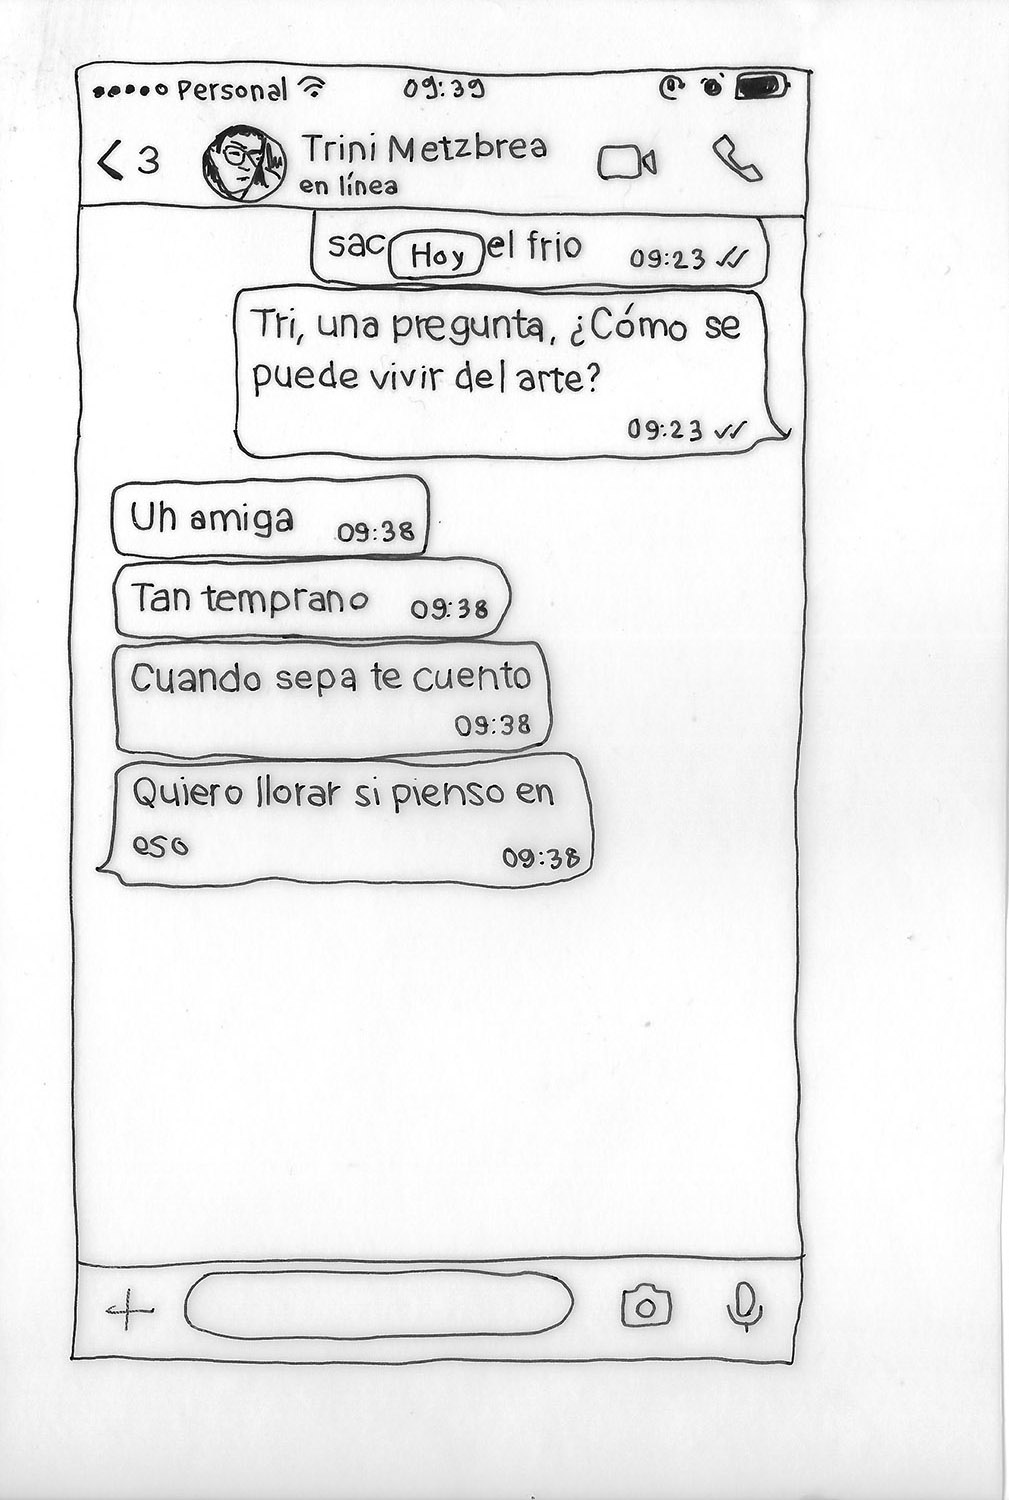 Personal 09:39
3 Trini Metzbrea
en línea
sac Hoy el frio 09:23
Tri, una pregunta, ¿Cómo se
puede vivir del arte?
09:23
Uh amiga 09:38
Tan temprano 09:38
Cuando sepa te cuento
09:38
Quiero llorar si pienso en
eso 09:38